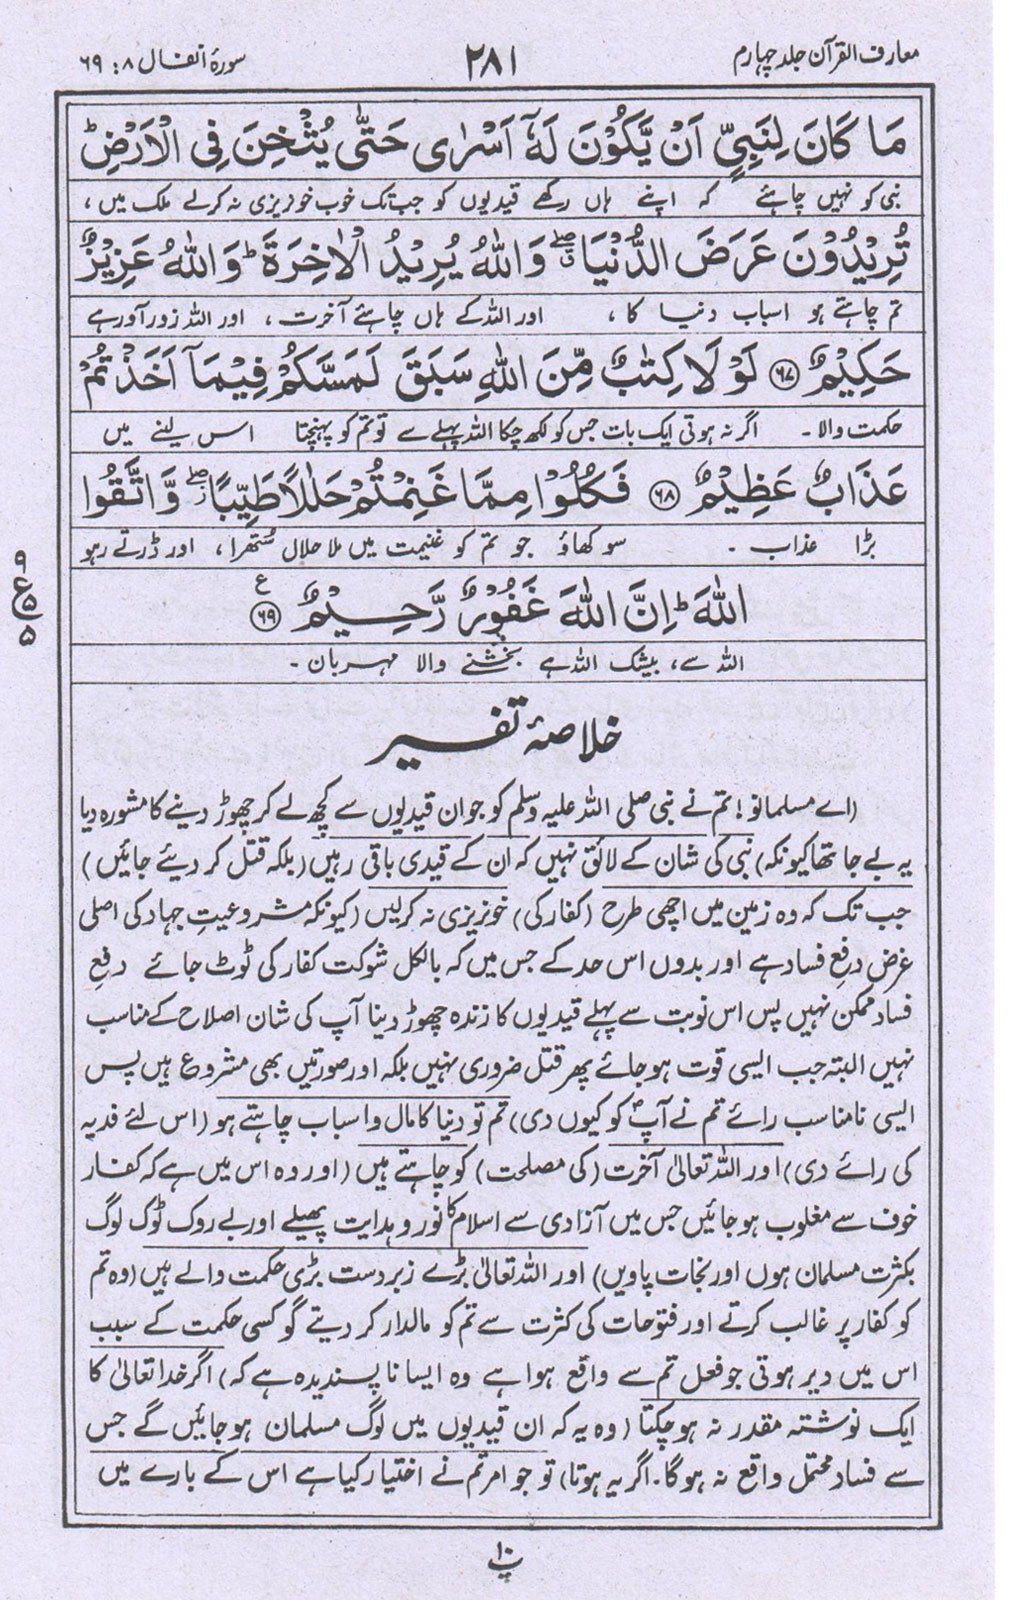 معارف القرآن جلد چہارم
۲۸۱
سورۂ انفال ۸ : ۶۹
مَا كَانَ لِنَبِیٍّ اَنْ یَّكُوْنَ لَهٗۤ اَسْرٰى حَتّٰى یُثْخِنَ فِی الْاَرْضِؕ
نبی کو نہیں چاہئے کہ اپنے ہاں رکھے قیدیوں کو جب تک خوب خونریزی نہ کرلے ملک میں ،
تُرِیْدُوْنَ عَرَضَ الدُّنْیَا ۖۗ وَاللّٰهُ یُرِیْدُ الْاٰخِرَةَؕ وَاللّٰهُ عَزِیْزٌ
تم چاہتے ہو اسباب دنیا کا ، اور اللہ کے ہاں چاہئے آخرت ، اور اللہ زور آور ہے
حَكِیْمٌ ﴿۶۷﴾ لَوْ لَا كِتٰبٌ مِّنَ اللّٰهِ سَبَقَ لَمَسَّكُمْ فِیْمَاۤ اَخَذْتُمْ
حکمت والا ۔ اگر نہ ہوتی ایک بات جس کو لکھ چکا اللہ پہلے سے تو تم کو پہنچتا اس لینے میں
عَذَابٌ عَظِیْمٌ ﴿۶۸﴾ فَكُلُوْا مِمَّا غَنِمْتُمْ حَلٰلًا طَیِّبًا ۖؗ وَّاتَّقُوا
بڑا عذاب ۔ سو کھاؤ جو تم کو غنیمت میں ملا حلال ستھرا ، اور ڈرتے رہو
اللّٰهَؕ اِنَّ اللّٰهَ غَفُوْرٌ رَّحِیْمٌ ﴿۶۹﴾ ع
اللہ سے ، بیشک اللہ ہے بخشنے والا مہربان ۔
۹
ع
۵
۵
خلاصۂ تفسیر
(اے مسلمانو ! تم نے نبی صلی اللہ علیہ وسلم کو جو ان قیدیوں سے کچھ لے کر چھوڑ دینے کا مشورہ دیا
یہ بے جا تھا کیونکہ) نبی کی شان کے لائق نہیں کہ ان کے قیدی باقی رہیں (بلکہ قتل کر دیئے جائیں)
جب تک کہ وہ زمین میں اچھی طرح (کفار کی) خونریزی نہ کرلیں (کیونکہ مشروعیتِ جہاد کی اصلی
غرض دفعِ فساد ہے اور بدوں اس حد کے جس میں کہ بالکل شوکت کفار کی ٹوٹ جائے دفعِ
فساد ممکن نہیں پس اس نوبت سے پہلے قیدیوں کا زندہ چھوڑ دینا آپ کی شان اصلاح کے مناسب
نہیں البتہ جب ایسی قوت ہو جائے پھر قتل ضروری نہیں بلکہ اور صورتیں بھی مشروع ہیں پس
ایسی نامناسب رائے تم نے آپؐ کو کیوں دی) تم تو دنیا کا مال و اسباب چاہتے ہو (اس لئے فدیہ
کی رائے دی) اور اللہ تعالیٰ آخرت (کی مصلحت) کو چاہتے ہیں (اور وہ اس میں ہے کہ کفار
خوف سے مغلوب ہو جائیں جس میں آزادی سے اسلام کا نور و ہدایت پھیلے اور بے روک ٹوک لوگ
بکثرت مسلمان ہوں اور نجات پاویں) اور اللہ تعالیٰ بڑے زبردست بڑی حکمت والے ہیں (وہ تم
کو کفار پر غالب کرتے اور فتوحات کی کثرت سے تم کو مالدار کر دیتے گو کسی حکمت کے سبب
اس میں دیر ہوتی جو فعل تم سے واقع ہوا ہے وہ ایسا ناپسندیدہ ہے کہ) اگر خدا تعالیٰ کا
ایک نوشتہ مقدر نہ ہو چکتا (وہ یہ کہ ان قیدیوں میں لوگ مسلمان ہو جائیں گے جس
سے فساد محتمل واقع نہ ہو گا ۔ اگر یہ ہوتا) تو جو امر تم نے اختیار کیا ہے اس کے بارے میں
پ۱۰